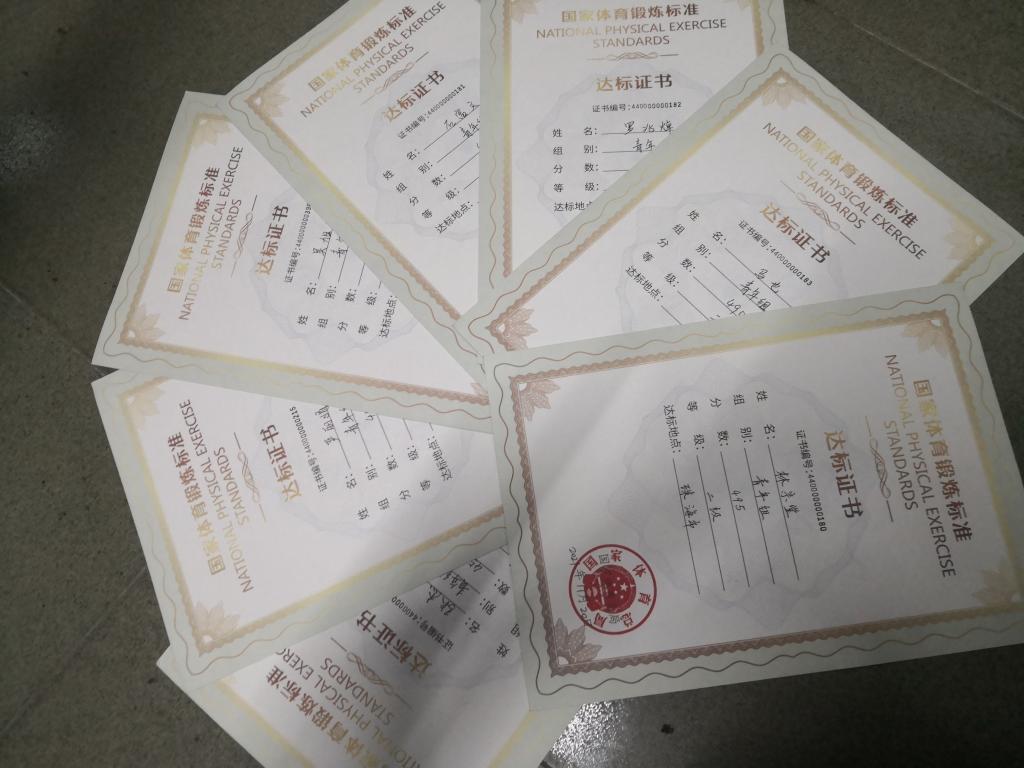 国家体育锻炼标准
NATIONAL PHYSICAL EXERCISE
STANDARDS
达标证书
证书编号:440000000181
姓 名:
组 别:
分 数:
等 级:
达标地点:
国家体育锻炼标准
NATIONAL PHYSICAL EXERCISE
STANDARDS
达标证书
证书编号:440000000182
姓 名: 罗兆
组 别: 青年
分 数:
等 级:
达标地点:
国家体育锻炼标准
NATIONAL PHYSICAL EXERCISE
STANDARDS
达标证书
证书编号:440000000183
姓 名:
组 别: 青年组
分 数: 49
等 级:
达标地点:
国家体育锻炼标准
NATIONAL PHYSICAL EXERCISE
STANDARDS
达标证书
证书编号:440000000180
姓 名: 林
组 别: 青年组
分 数: 495
等 级: 二级
达标地点: 珠海市
国家体育总局
国家体育锻炼标准
NATIONAL PHYSICAL EXERCISE
STANDARDS
达标证书
姓 名: 吴
组 别: 青
分 数:
等 级:
达标地点:
国家体育锻炼标准
NATIONAL PHYSICAL EXERCISE
STANDARDS
达标证书
证书编号:440000000215
姓 名:
组 别:
分 数:
等 级:
达标地点:
国家体育锻炼标准
NATIONAL PHYSICAL EXERC
STANDARDS
达标证书
证书编号:4400000
姓 名:
组 别: 青年
数: